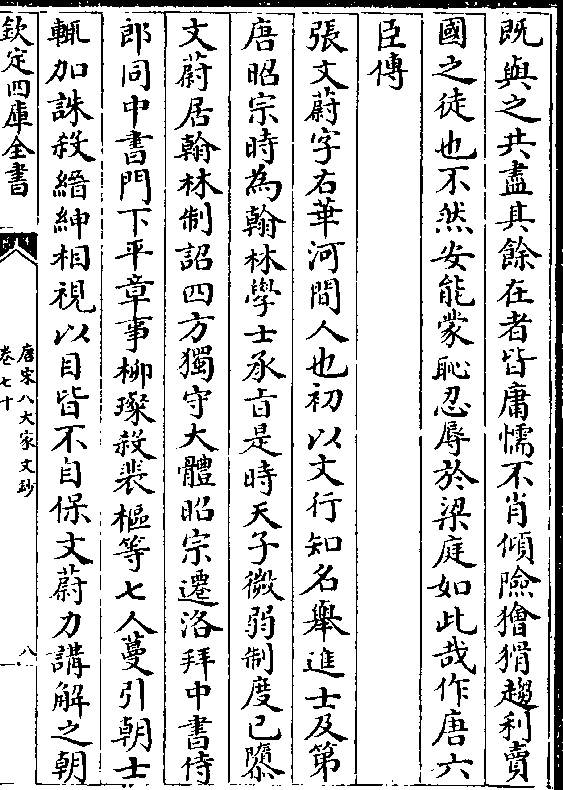 既與之共盡其餘在者皆庸懦不肖傾險獪猾趨利賣
國之徒也不然安能蒙恥忍辱於梁庭如此哉作唐六
臣傳
張文蔚字右華河間人也初以文行知名舉進士及第
唐昭宗時為翰林學士承旨是時天子微弱制度已隳
文蔚居翰林制詔四方獨守大體昭宗遷洛拜中書侍
郎同中書門下平章事柳璨殺裴樞等七人蔓引朝士
輒加誅殺縉紳相視以目皆不自保文蔚力講解之朝
欽定四庫全書
唐宋八大家文鈔
卷七十
八